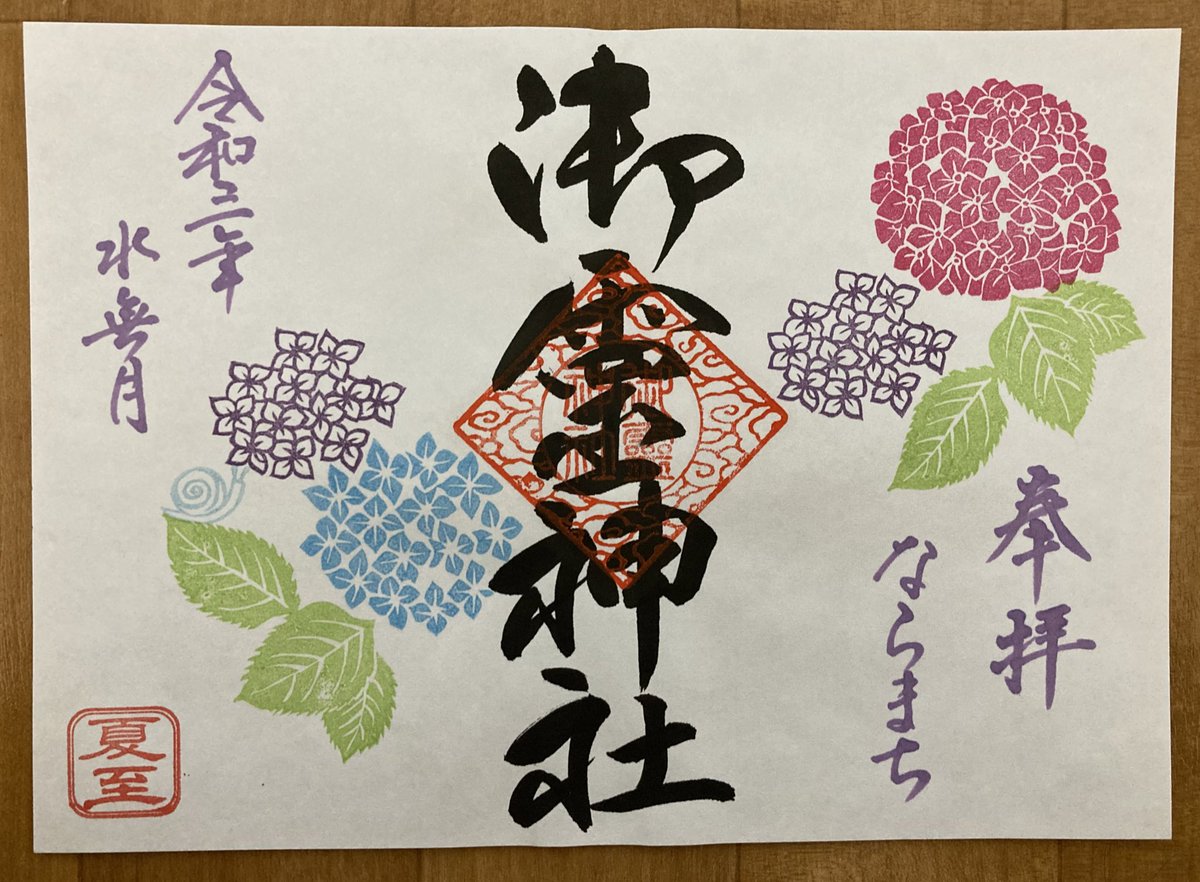 奉拝
ならまち
御霊神社
令和三年
水無月
夏至